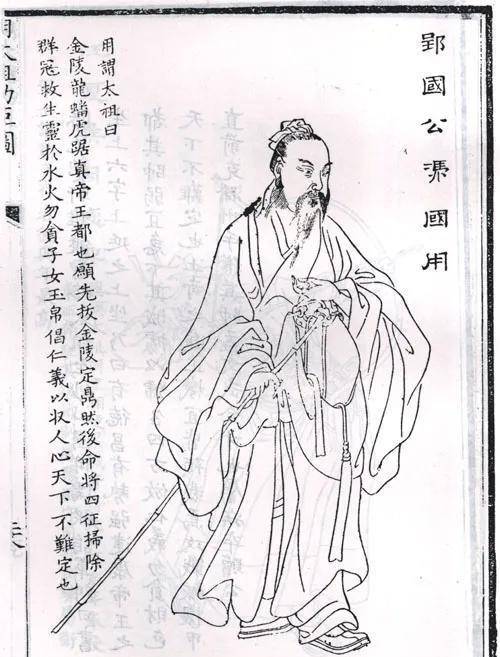 郢國公馮國用
用謂太祖曰
金陵龍蟠虎踞真帝王都也願先拔金陵定鼎然後命將四征掃除
群寇救生靈於水火勿貪子女玉帛倡仁義以収人心天下不難定也